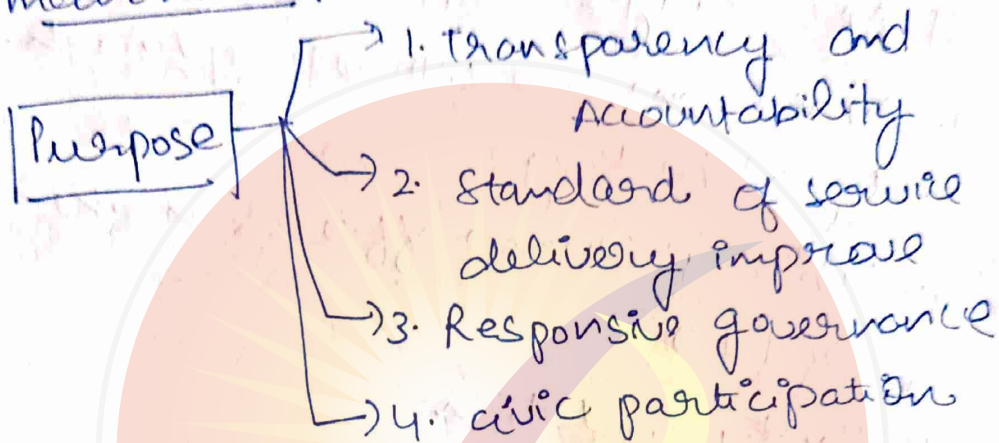 1. Transparency and
Accountability
Purpose
2. Standard of service
delivery improve
3. Responsive governance
4. civic participation